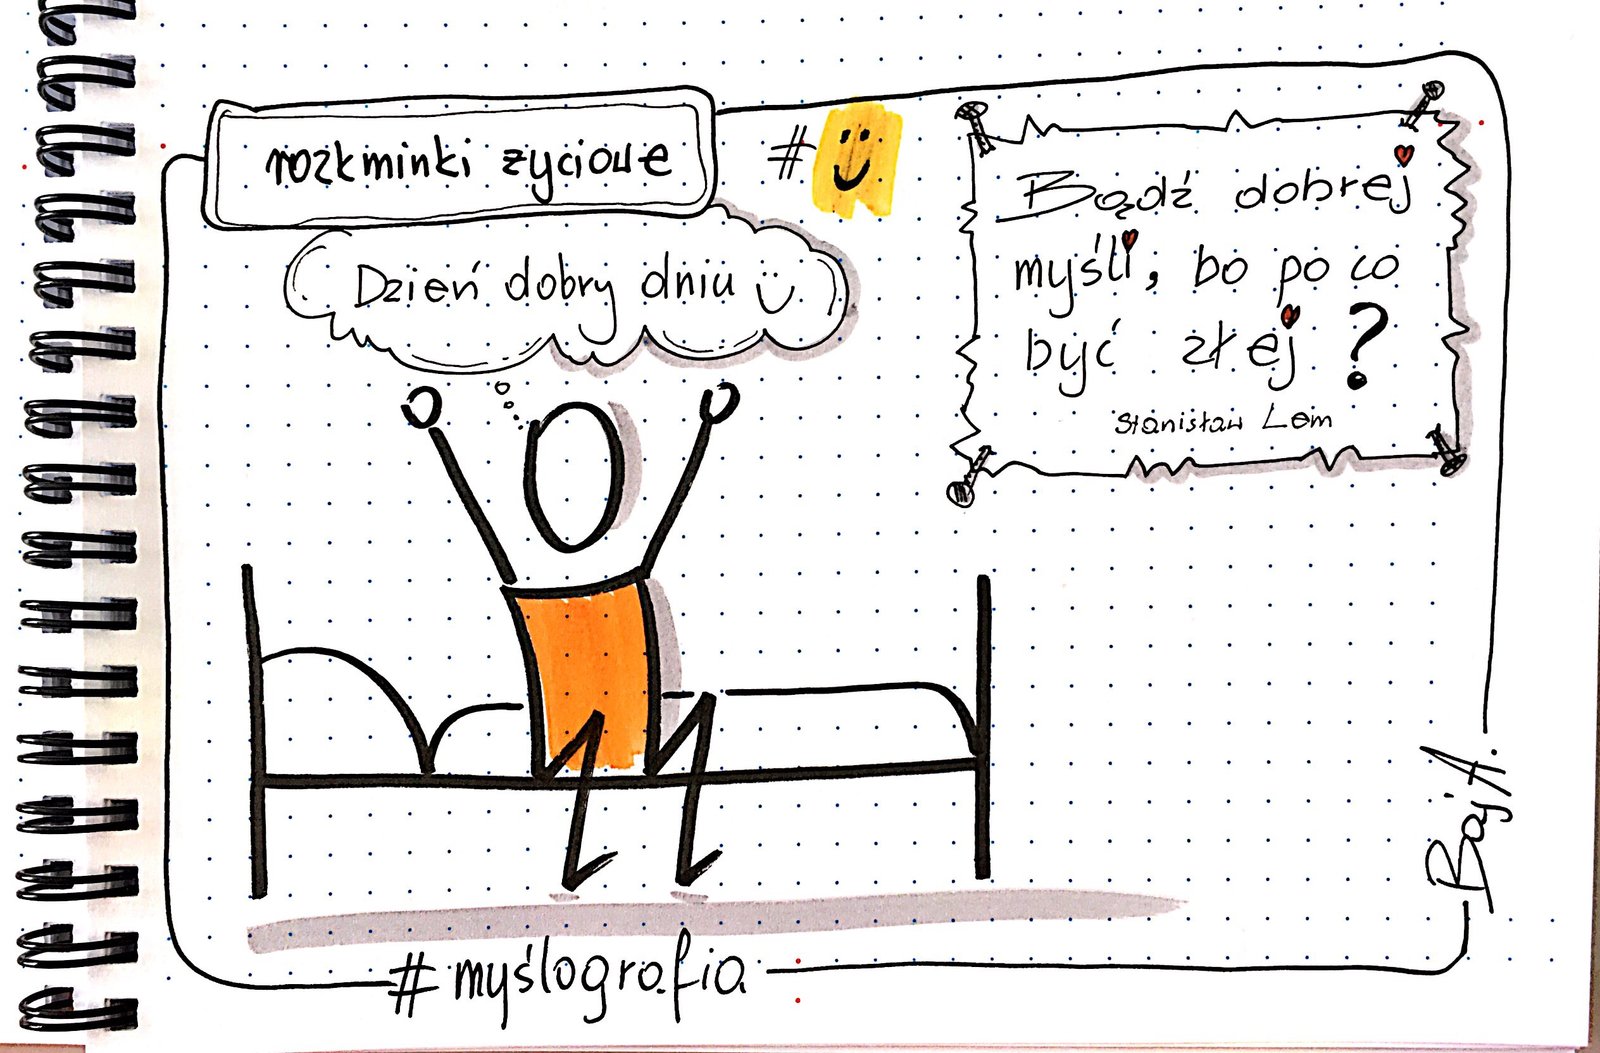 rozkminki życiowe
#
Dzień dobry dniu
Bądź dobrej
myśli, bo po co
być złej ?
Stanisław Lem
#myślografia
Boj A.